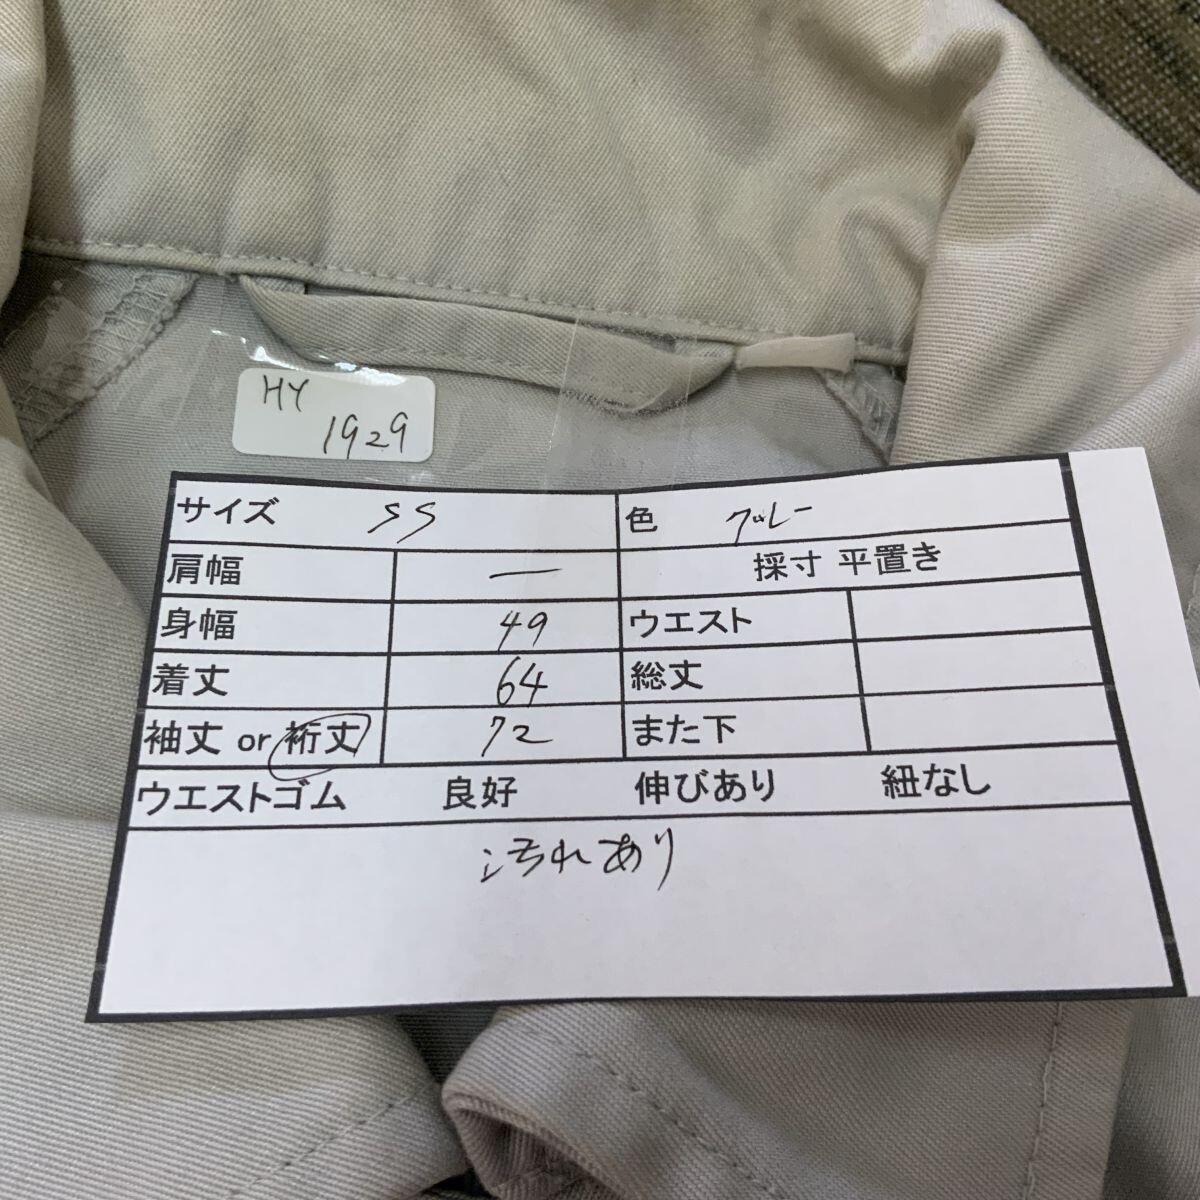 HY
1929
サイズ SS 色 グレー
肩幅 ー 採寸 平置き
身幅 49 ウエスト
着丈 64 総丈
袖丈 or 裄丈 72 また下
ウエストゴム 良好 伸びあり 紐なし
汚れあり